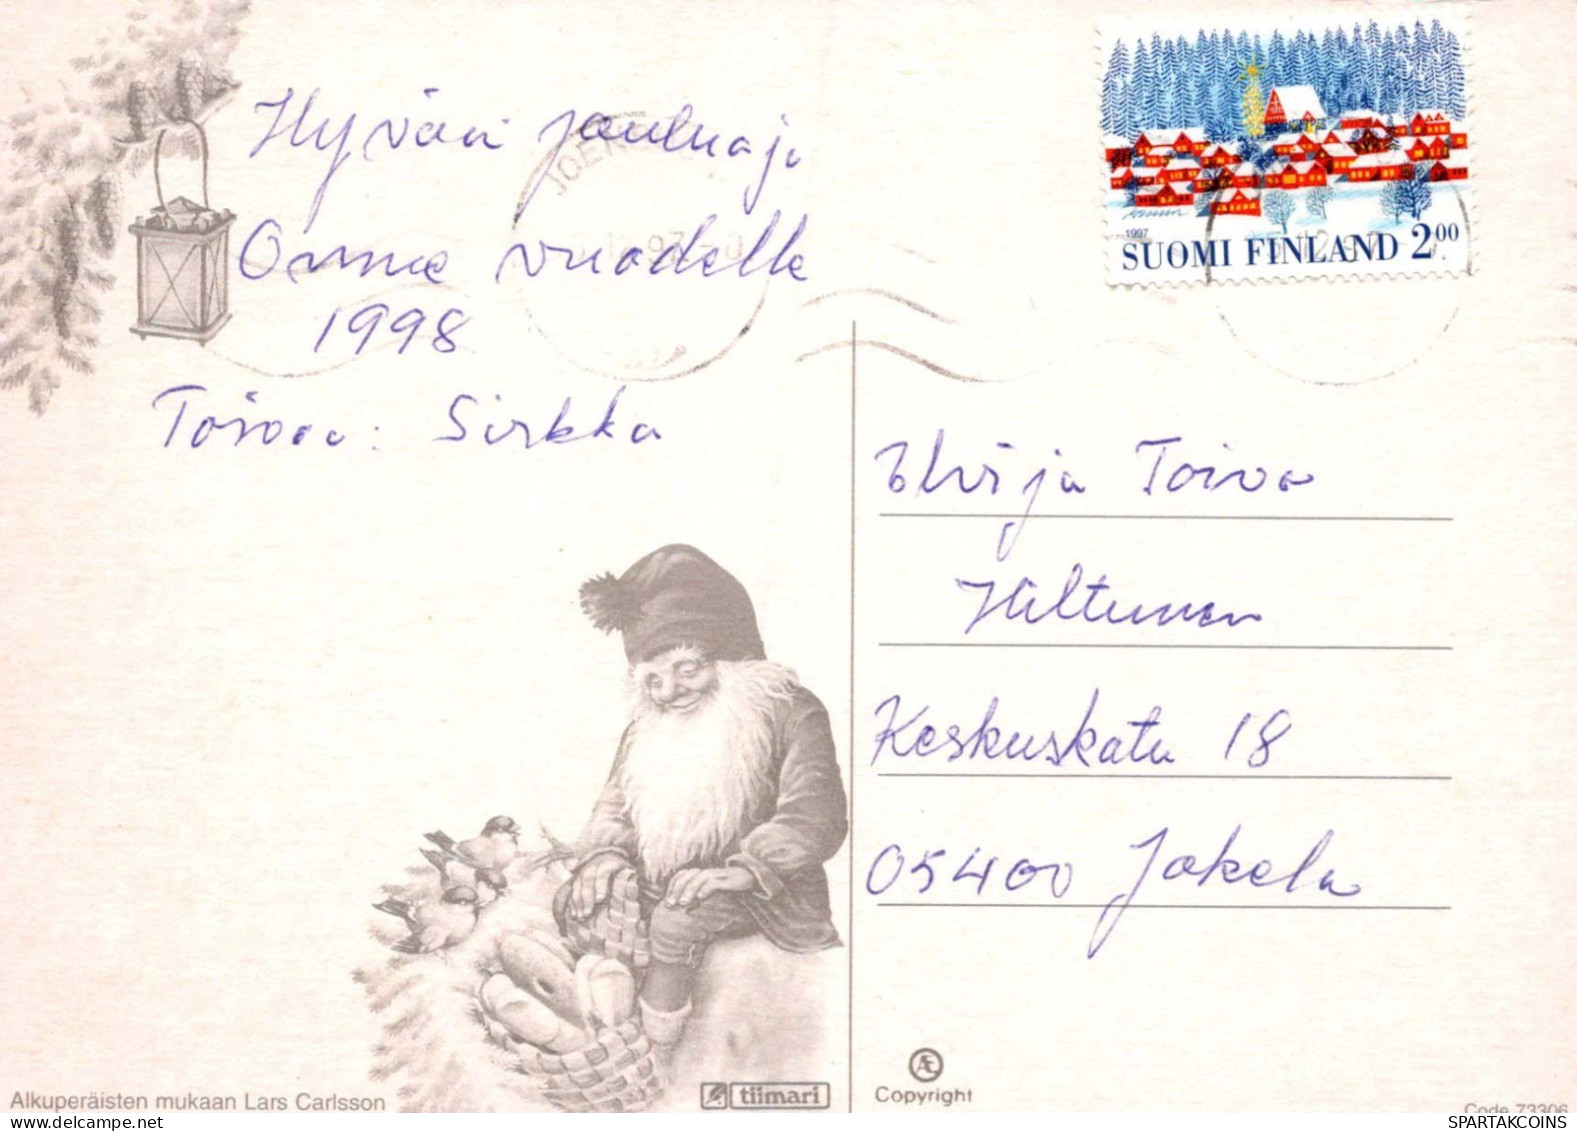 Hyvää joulua ja
Onnea vuodelle
1998
Toivoo: Sirkka
1997
SUOMI FINLAND 2.00
Elvi ja Toivo
Hiltunen
Keskuskatu 18
05400 Jokela
Alkuperäisten mukaan Lars Carlsson
tiimari
Copyright
Code 73306
delcampe.net
SPARTAKCOINS